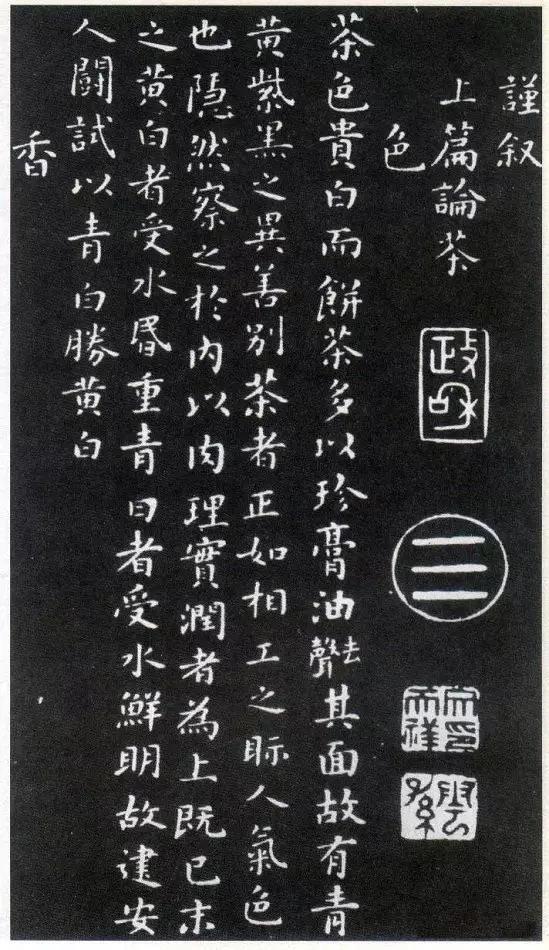 謹叙
上篇論茶
政和
色
茶色貴白而餅茶多以珍膏油去聲其面故有青
黄紫黑之異善别茶者正如相工之眎人氣色
也隱然察之於内以肉理實潤者為上既已末
之黄白者受水昬重青白者受水鮮明故建安
人鬭試以青白勝黄白
香